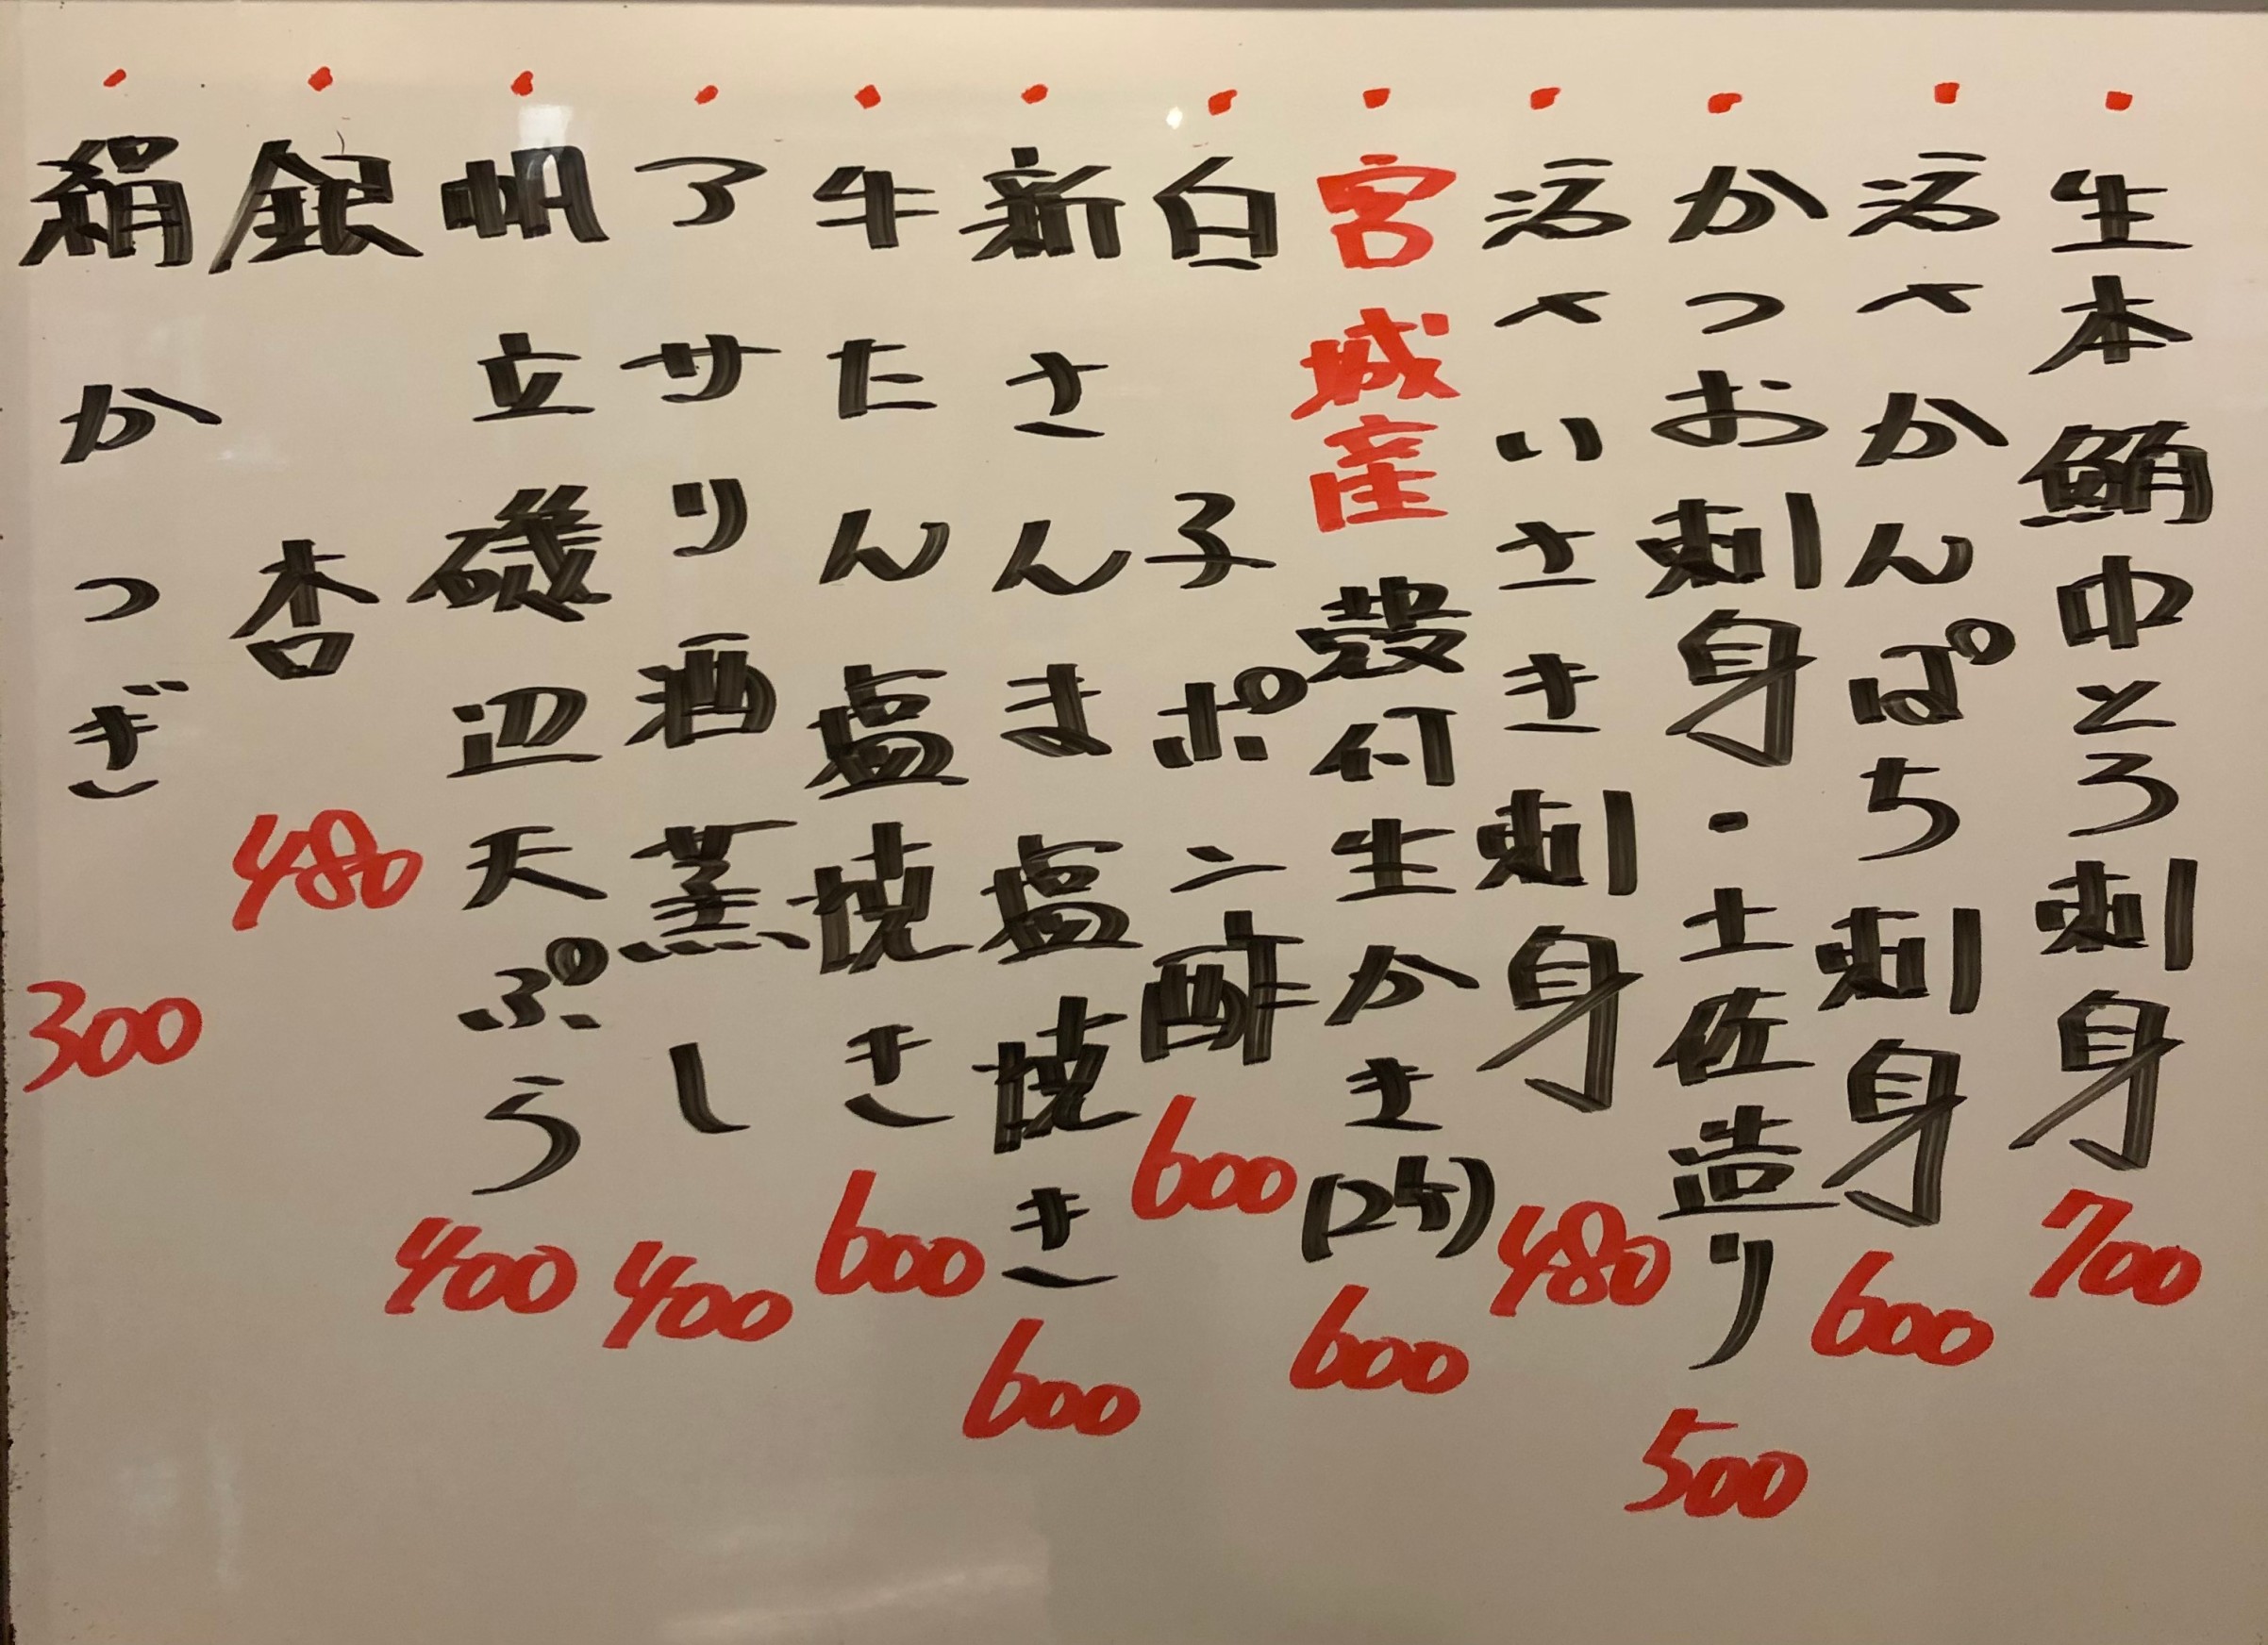 ・生本鮪中とろ刺身 700
・活〆かんぱち刺身 600
・かつお刺身・土佐造り 500
・活〆いさき刺身 480
・宮城産 殻付生かき(2ケ) 600
・白子ポン酢 600
・新さんま塩焼き 600
・牛たん塩焼き 600
・アサリ酒蒸し 400
・帆立磯辺天ぷら 400
・銀杏 480
・絹かつぎ 300